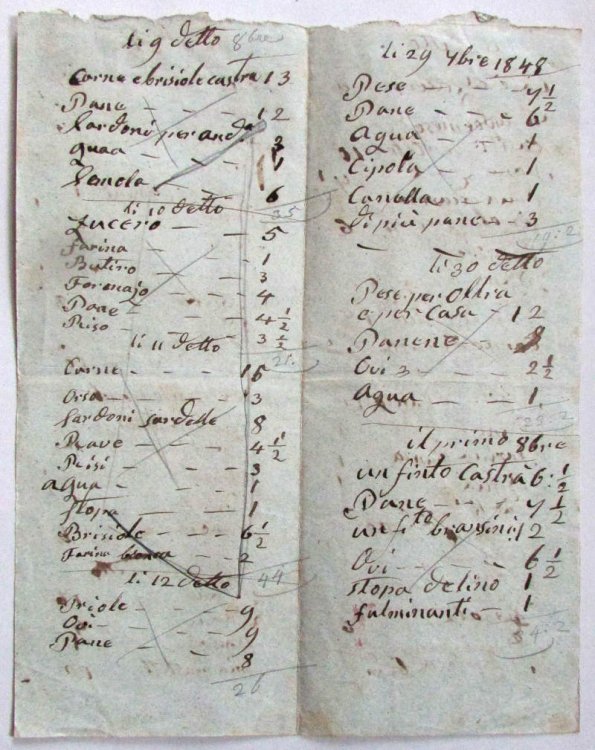 li 9 detto 8bre
Carne e brisiole castra 13
Pane - - - 12
Sardoni per anda 3
aqua - - - 1
Semola - - 6
35
li 10 detto
Zucero - - 5
farina - - - 1
Butiro - - - 3
Formajo - - 4
Pane - - - 4 1/2
Riso - - - 3 1/2
21
li 11 detto
Carne - - - 15
Orsa - - - 3
Sardoni sardelle 8
Rave - - - 4 1/2
Risi - - - 3
aqua - - - 1
stopa - - - 1
Brisiole - - 6 1/2
Farina bianca - 2
44
li 12 detto
Priole - - - 9
Ovi - - - 9
Pane - - - 8
26
li 29 7bre 1848
Pese - - - 7 1/2
Pane - - - 6
aqua - - 1
Cipola - - 1
Canella - - 1
di più pane - 3
19:2
li 30 detto
Pese per Oltra
e per Casa - 12
Pane - 8
Ovi 3 - - 2 1/2
aqua - - 1
23:2
il primo 8bre
un finto Castrà 6:1/2
Pane - - - 7 1/2
un fi.to bransini: 12
Ovi - - - 6 1/2
stopa de lino 1
fulminanti - 1
34:2